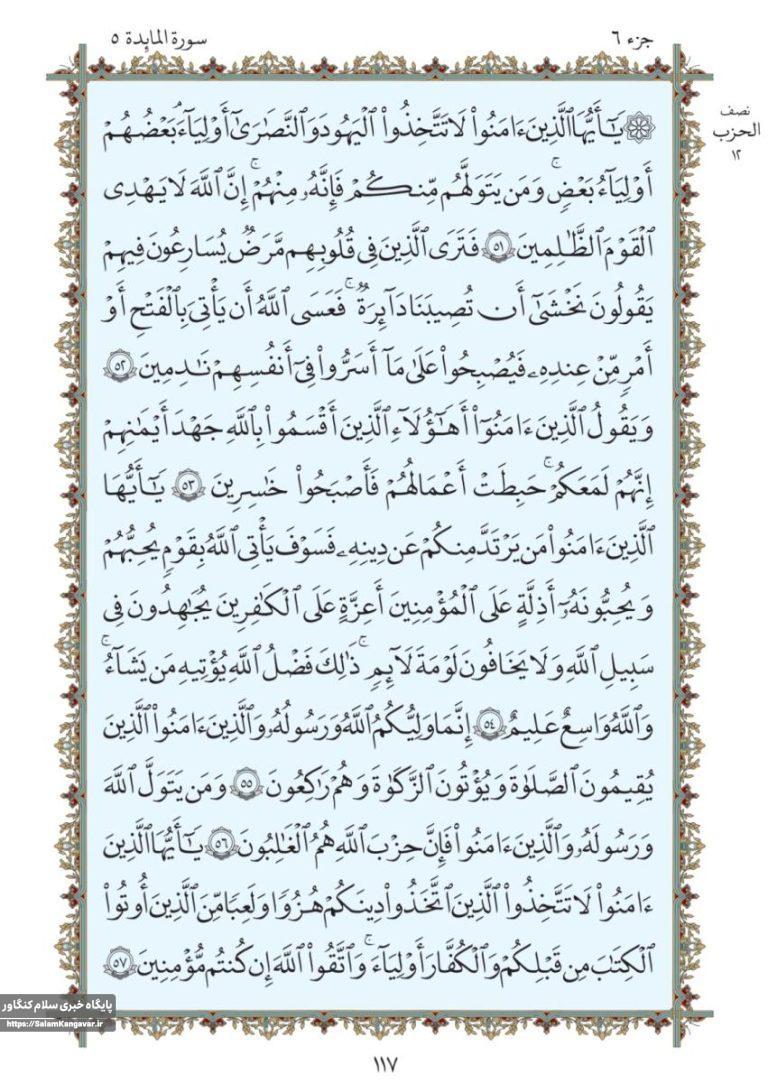 جزء ٦
سورة المائدة ٥
نصف
الحزب
١٢
۞ يَـٰٓأَيُّهَا ٱلَّذِينَ ءَامَنُوا۟ لَا تَتَّخِذُوا۟ ٱلْيَهُودَ وَٱلنَّصَـٰرَىٰٓ أَوْلِيَآءَ ۘ بَعْضُهُمْ
أَوْلِيَآءُ بَعْضٍ ۚ وَمَن يَتَوَلَّهُم مِّنكُمْ فَإِنَّهُۥ مِنْهُمْ ۗ إِنَّ ٱللَّهَ لَا يَهْدِى
ٱلْقَوْمَ ٱلظَّـٰلِمِينَ ٥١ فَتَرَى ٱلَّذِينَ فِى قُلُوبِهِم مَّرَضٌ يُسَـٰرِعُونَ فِيهِمْ
يَقُولُونَ نَخْشَىٰٓ أَن تُصِيبَنَا دَآئِرَةٌ ۚ فَعَسَى ٱللَّهُ أَن يَأْتِىَ بِٱلْفَتْحِ أَوْ
أَمْرٍ مِّنْ عِندِهِۦ فَيُصْبِحُوا۟ عَلَىٰ مَآ أَسَرُّوا۟ فِىٓ أَنفُسِهِمْ نَـٰدِمِينَ ٥٢
وَيَقُولُ ٱلَّذِينَ ءَامَنُوٓا۟ أَهَـٰٓؤُلَآءِ ٱلَّذِينَ أَقْسَمُوا۟ بِٱللَّهِ جَهْدَ أَيْمَـٰنِهِمْ
إِنَّهُمْ لَمَعَكُمْ ۚ حَبِطَتْ أَعْمَـٰلُهُمْ فَأَصْبَحُوا۟ خَـٰسِرِينَ ٥٣ يَـٰٓأَيُّهَا
ٱلَّذِينَ ءَامَنُوا۟ مَن يَرْتَدَّ مِنكُمْ عَن دِينِهِۦ فَسَوْفَ يَأْتِى ٱللَّهُ بِقَوْمٍ يُحِبُّهُمْ
وَيُحِبُّونَهُۥٓ أَذِلَّةٍ عَلَى ٱلْمُؤْمِنِينَ أَعِزَّةٍ عَلَى ٱلْكَـٰفِرِينَ يُجَـٰهِدُونَ فِى
سَبِيلِ ٱللَّهِ وَلَا يَخَافُونَ لَوْمَةَ لَآئِمٍ ۚ ذَٰلِكَ فَضْلُ ٱللَّهِ يُؤْتِيهِ مَن يَشَآءُ ۚ
وَٱللَّهُ وَٰسِعٌ عَلِيمٌ ٥٤ إِنَّمَا وَلِيُّكُمُ ٱللَّهُ وَرَسُولُهُۥ وَٱلَّذِينَ ءَامَنُوا۟ ٱلَّذِينَ
يُقِيمُونَ ٱلصَّلَوٰةَ وَيُؤْتُونَ ٱلزَّكَوٰةَ وَهُمْ رَٰكِعُونَ ٥٥ وَمَن يَتَوَلَّ ٱللَّهَ
وَرَسُولَهُۥ وَٱلَّذِينَ ءَامَنُوا۟ فَإِنَّ حِزْبَ ٱللَّهِ هُمُ ٱلْغَـٰلِبُونَ ٥٦ يَـٰٓأَيُّهَا ٱلَّذِينَ
ءَامَنُوا۟ لَا تَتَّخِذُوا۟ ٱلَّذِينَ ٱتَّخَذُوا۟ دِينَكُمْ هُزُوًا وَلَعِبًا مِّنَ ٱلَّذِينَ أُوتُوا۟
ٱلْكِتَـٰبَ مِن قَبْلِكُمْ وَٱلْكُفَّارَ أَوْلِيَآءَ ۚ وَٱتَّقُوا۟ ٱللَّهَ إِن كُنتُم مُّؤْمِنِينَ ٥٧
پایگاه خبری سلام کنگاور
https://SalamKangavar.ir
١١٧